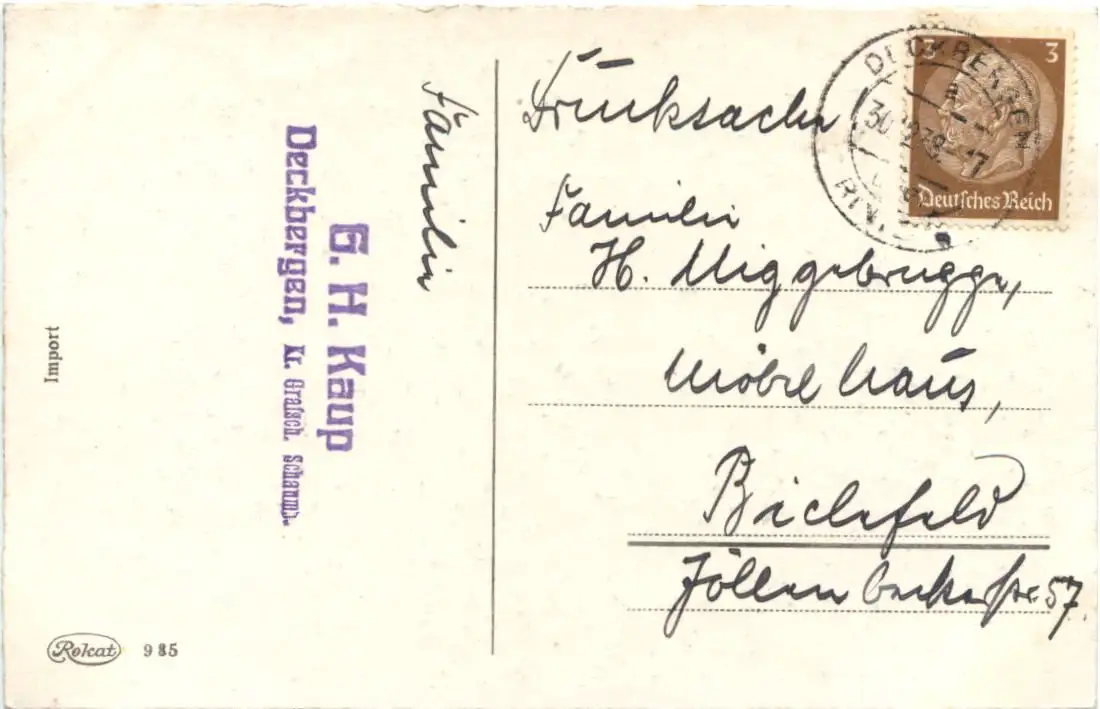 Familie
G. H. Kaup
Deckbergen, Kr. Grafsch. Schaumb.
Import
Rokat 985
Drucksache
3 3
Deutsches Reich
DECKBERGEN
30.12.39.-17
Familie
H. Miggebrugge,
Möbelhaus,
Bielefeld
Jöllenbeckerstr. 57.